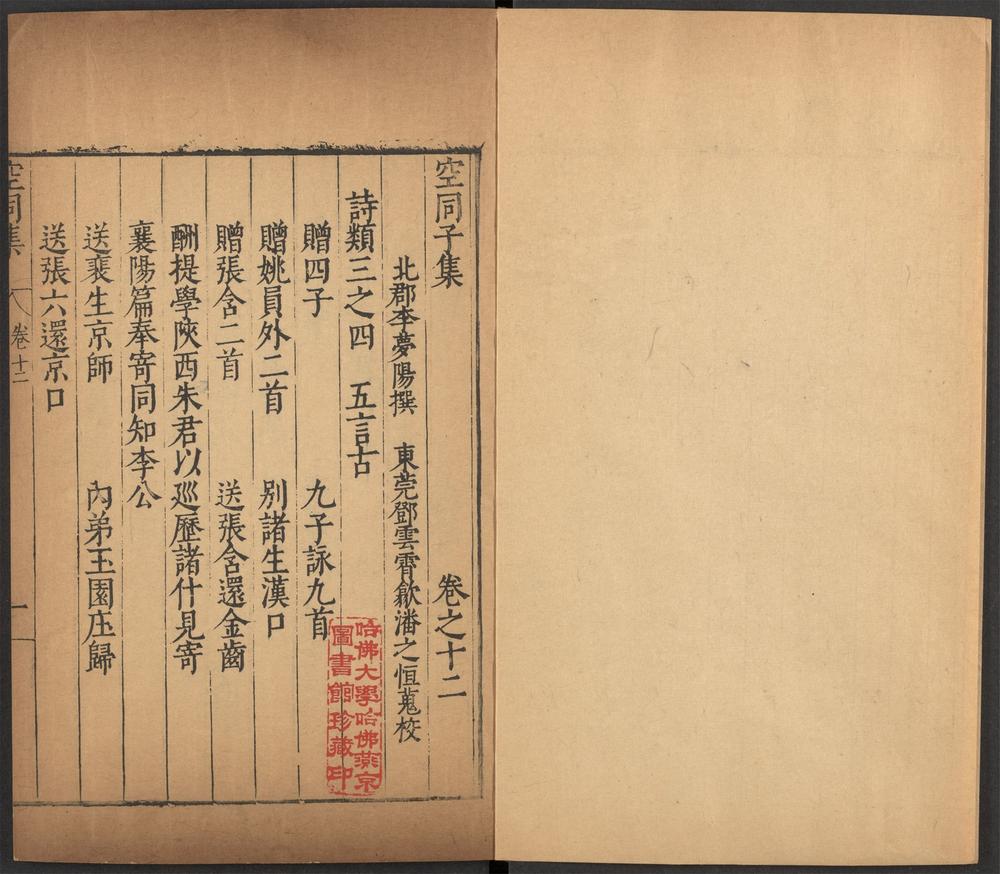 空同子集 卷之十二
北郡李夢陽撰 東莞鄧雲霄歙潘之恒蒐校
詩類三之四 五言古
贈四子 九子詠九首
贈姚員外二首 別諸生漢口
贈張含二首 送張含還金齒
酬提學陝西朱君以巡歷諸什見寄
襄陽篇奉寄同知李公
送裵生京師 內弟玉園庄歸
送張六還京口
空同集 卷十二 一
哈佛大學哈佛燕京
圖書館珍藏印